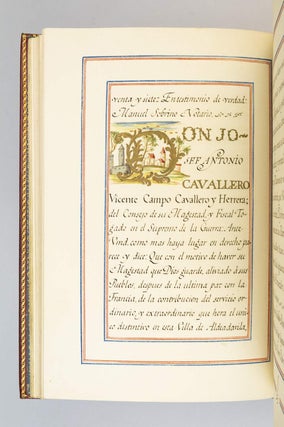 venta y siete: En testimonio de verdad:
Manuel Sobrino Notario.
DON JO-
SEF ANTONIO
CAVALLERO
Vicente Campo Cavallero y Herrera;
del Consejo de su Magestad, y Fiscal To-
gado en el Supremo de la Guerra: Ante
Vmd. como mas haya lugar en derecho pa-
rece y dice: Que con el motivo de haver su
Magestad que Dios guarde, aliviado á sus
Pueblos, despues de la ultima paz con la
Francia, de la contribucion del servicio or-
dinario, y extraordinario que hera el unico
distintivo en esta Villa de